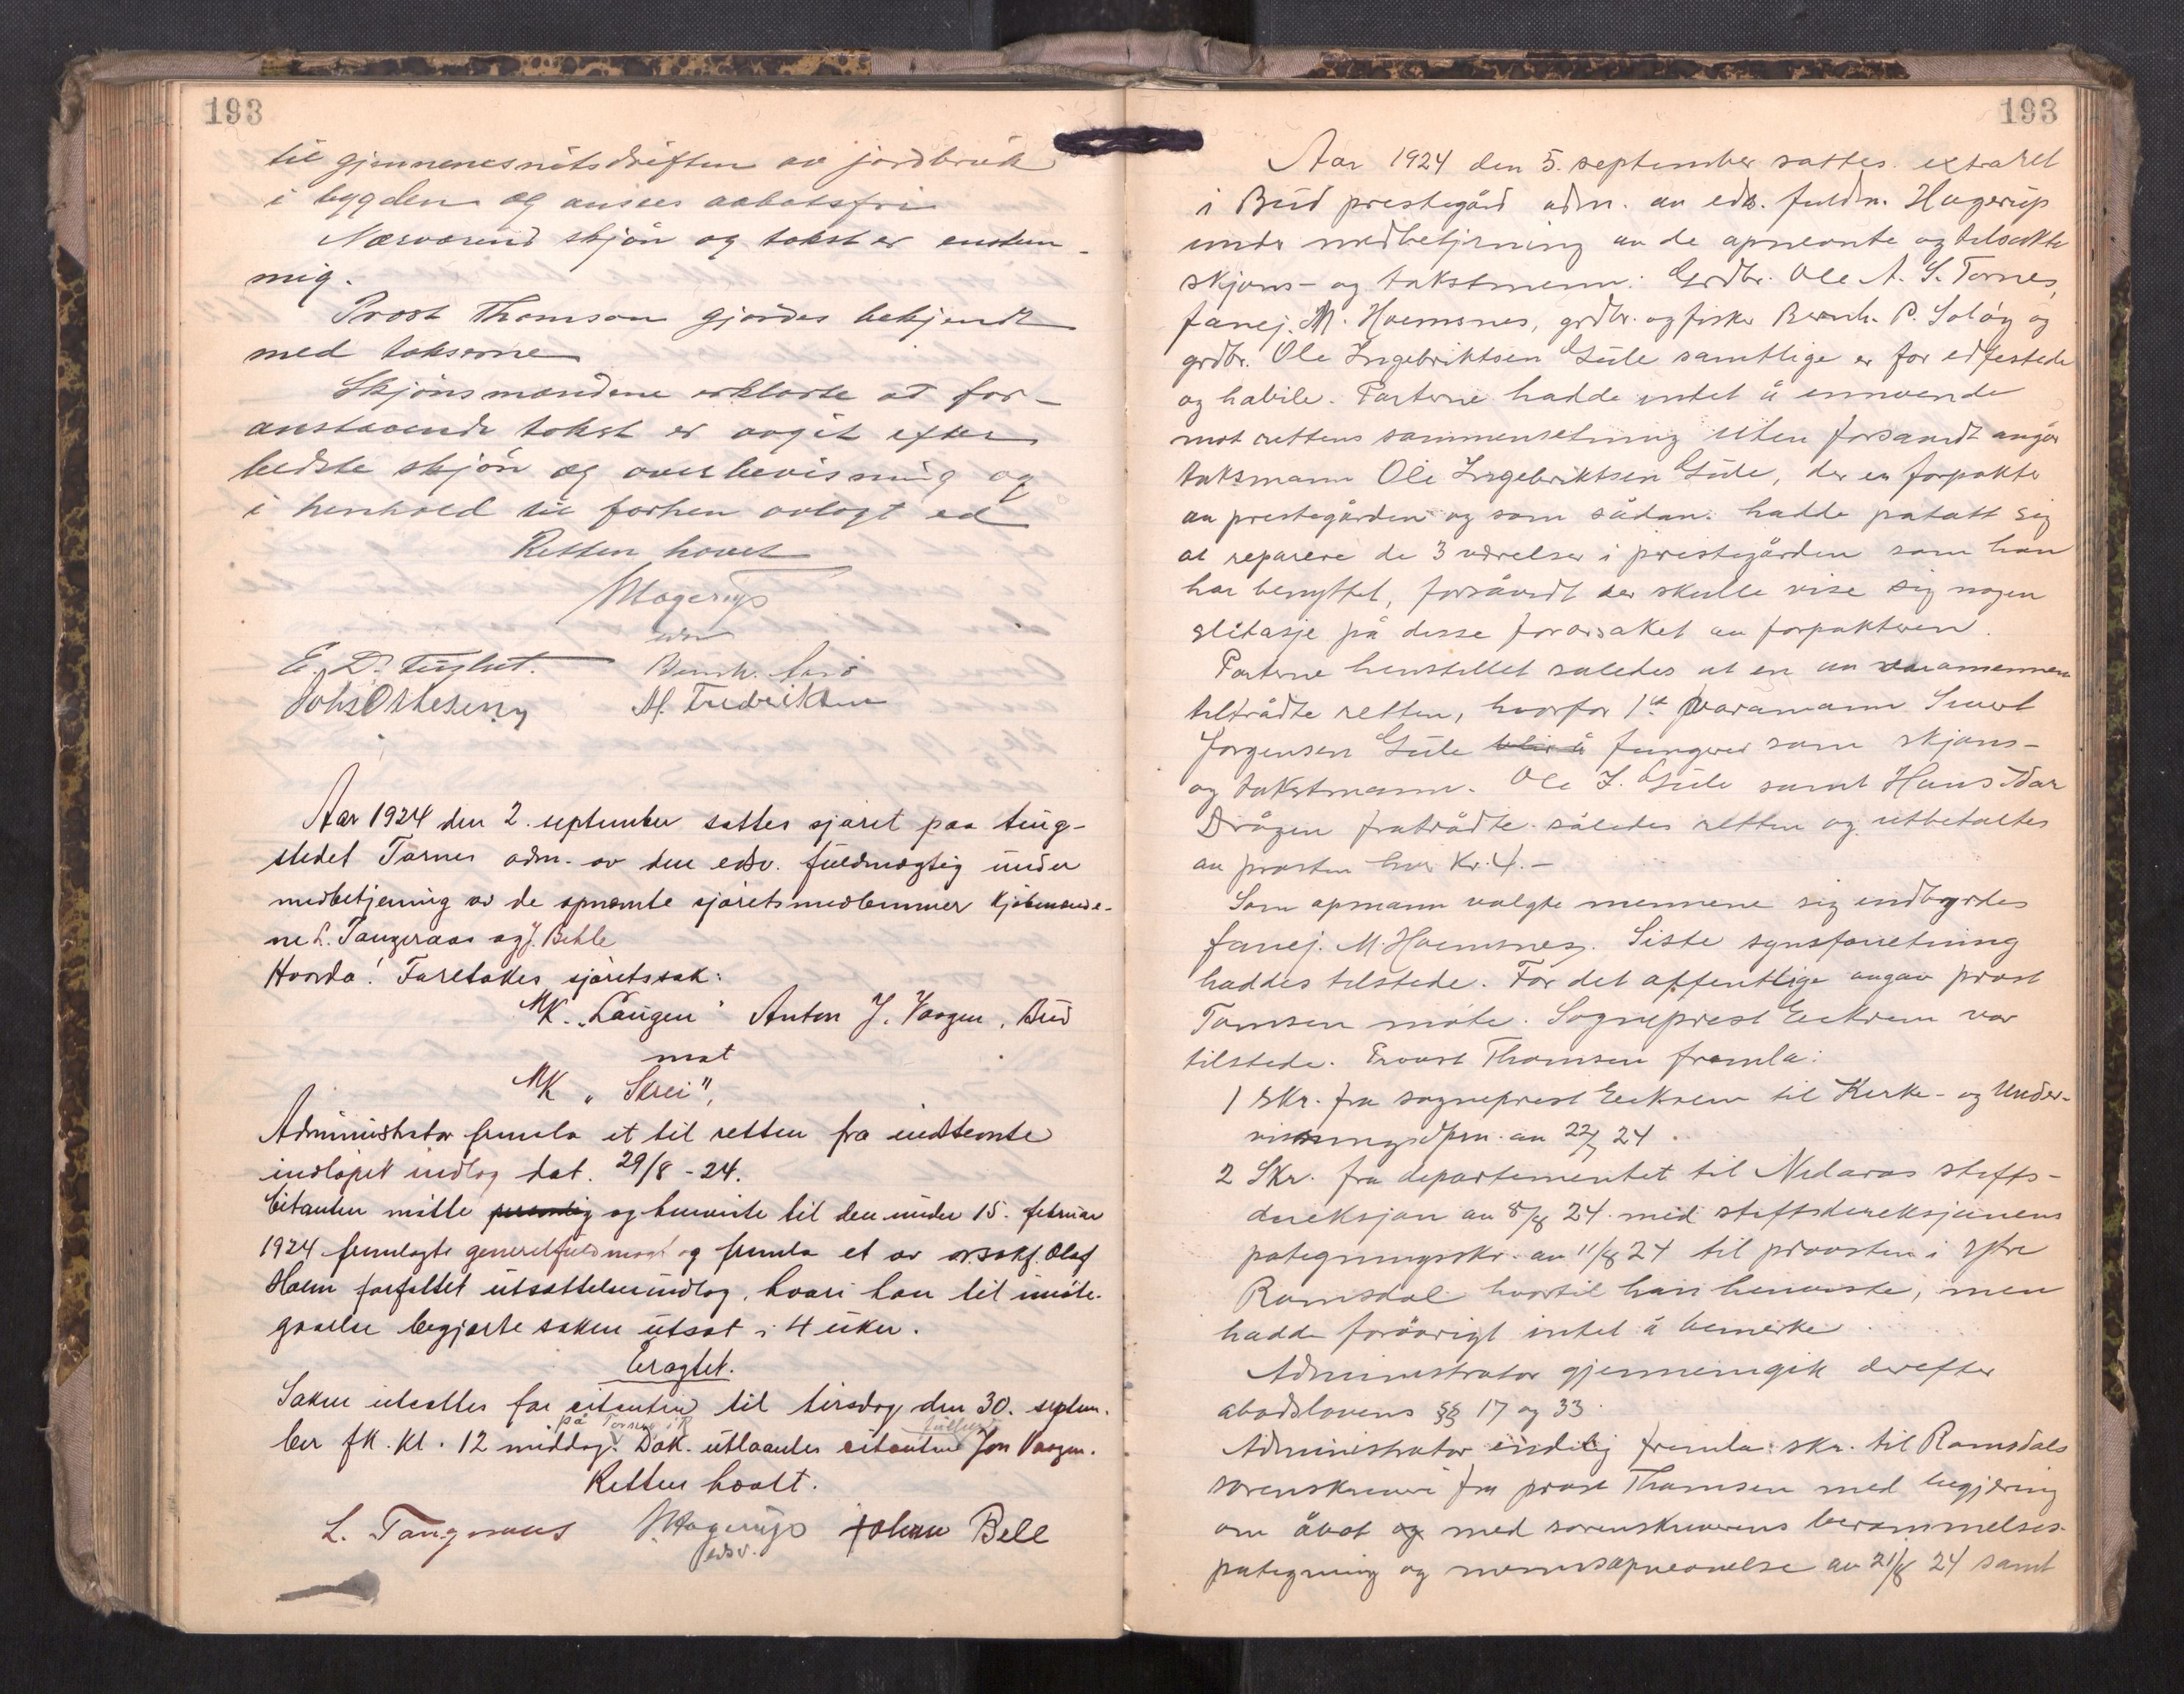 193
til gjennemsnitsdriften av jordbruk
i bygden og ansees aabotsfri
Nærværend skjøn og takst er enstem-
mig.
Prost Thomson gjordes bekjendt
med taksterne
Skjønsmændene erklærte at for-
anstaaende takst er avgit efter
bedste skjøn og overbevisning og
i henhold til forhen avlagt ed
Retten hævet
MHagerup
edsv
E. D.
M. Fredriksen
Aar 1924 den 2. september sattes sjøret paa ting-
stedet Tornes adm. av den edsv. fuldmægtig under
medbetjening av de opnævnte sjøretsmedlemmer kjøbmænde-
ne L. Tangeraas og J. Behle
Hvorda! Foretokes sjøretssak:
MK. "Laugen" Anton J. Vaagen, Bud
mot
MK "Skrei",
Administrator fremla et til retten fra indstevnte
indløpet indlæg dat. 29/8-24.
Citanten møtte personlig og henviste til den under 15. februar
1924 fremlagte generelfuldmagt og fremla et av o.r.sakf. Olaf
Holm forfattet utsættelsesindlæg, hvori han til imøte-
gaaelse begjærte saken utsat i 4 uker.
Eragtet.
Saken utsættes for citanten til tirsdag den 30. septem-
på Tornes i R fuldm.
ber fk. kl. 12 middag. Dok. utlaantes citanten Jon Vaagen.
Retten hævt.
L. Tangeraas MHagerup Johan Bell
edsv.
193
Aar 1924 den 5. september sattes extraret
i Bud prestegård adm. av eds. fuldm. Hagerup
under medbetjening av de opnevnte og tilsakte
skjøns- og takstmenn: Grdbr. Ole A. S. Tornes,
fanej. M. Hoemsnes, grdbr. og fisker Bernh. P. Soløy og
grdbr. Ole Ingebriktsen Gule samtlige er før edfestede
og habile. Parterne hadde intet å innvende
mot rettens sammensetning uten forsavidt angår
taksmann Ole Ingebriktsen Gule, der er forpakter
av prestegården og som sådan hadde påtatt sig
at reparere de 3 værelser i prestegården som han
har benyttet, forsåvidt der skulle vise sig nogen
slitasje på disse forårsaket av forpakteren.
Parterne henstillet således at en av varamennene
tiltrådte retten, hvorfor 1ste varamann Sivert
Jørgensen Gule blir å fungerer som skjøns-
og takstmann. Ole I. Gule samt Hans Idar
Drågen fratrådte således retten og utbetaltes
av prosten hver kr. 4.-
Som opmann valgte mennene sig indbyrdes
fanej. M. Hoemsnes. Siste synsforretning
haddes tilstede. For det offentlige angav prost
Tomsen møte. Sogneprest Eeckrem var
tilstede. Provst Thomsen fremla:
1 Skr. fra sogneprest Eeckrem til Kirke- og Under-
visningsdprn. av 22/7 24.
2 Skr. fra departementet til Nidaros stifts-
direksjon av 8/8 24 med stiftsdireksjonens
påtegningsskr. av 11/8 24 til provsten i Ytre
Romsdal hvortil han henviste, men
hadde forøvrigt intet å bemerke.
Administrator gjennemgik derefter
åbodslovens §§ 17 og 33.
Administrator endelig fremla: skr. til Romsdals
sorenskriveri fra prost Thomsen med begjæring
om åbot og med sorenskriverens berammelses-
påtegning og mennsopnevnelse av 21/8 24 samt